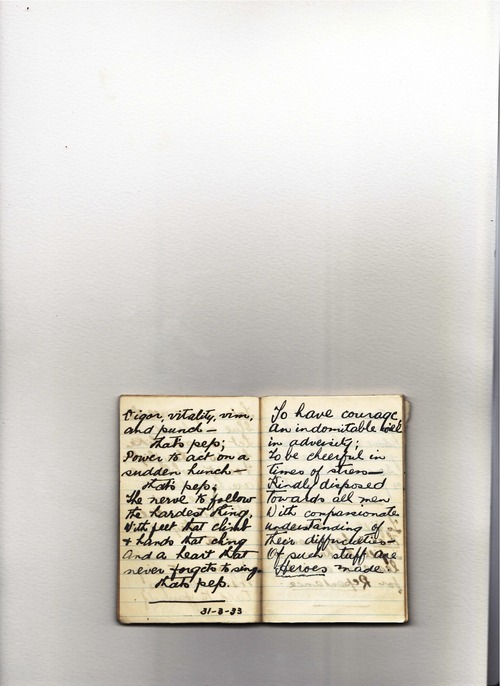 Vigor, vitality, vim,
and punch —
thats pep;
Power to act on a
sudden hunch —
thats pep;
The nerve to follow
the hardest thing,
With feet that climb
& hands that cling
And a heart that
never forgets to sing —
thats pep.
31-3-33
To have courage,
An indomitable will
in adversity;
To be cheerful in
times of stress —
Kindly disposed
Towards all men
With compassionate
understanding of
their difficulties —
Of such stuff are
Heroes made.